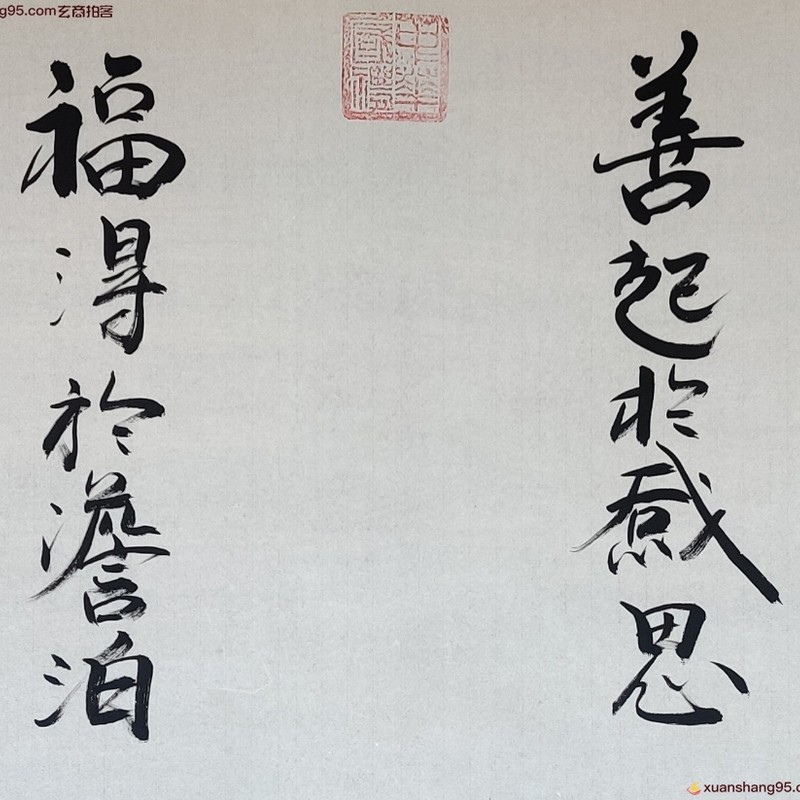 ng95.com玄商拍客
善起於感恩
福得於澹泊
xuanshang95.c